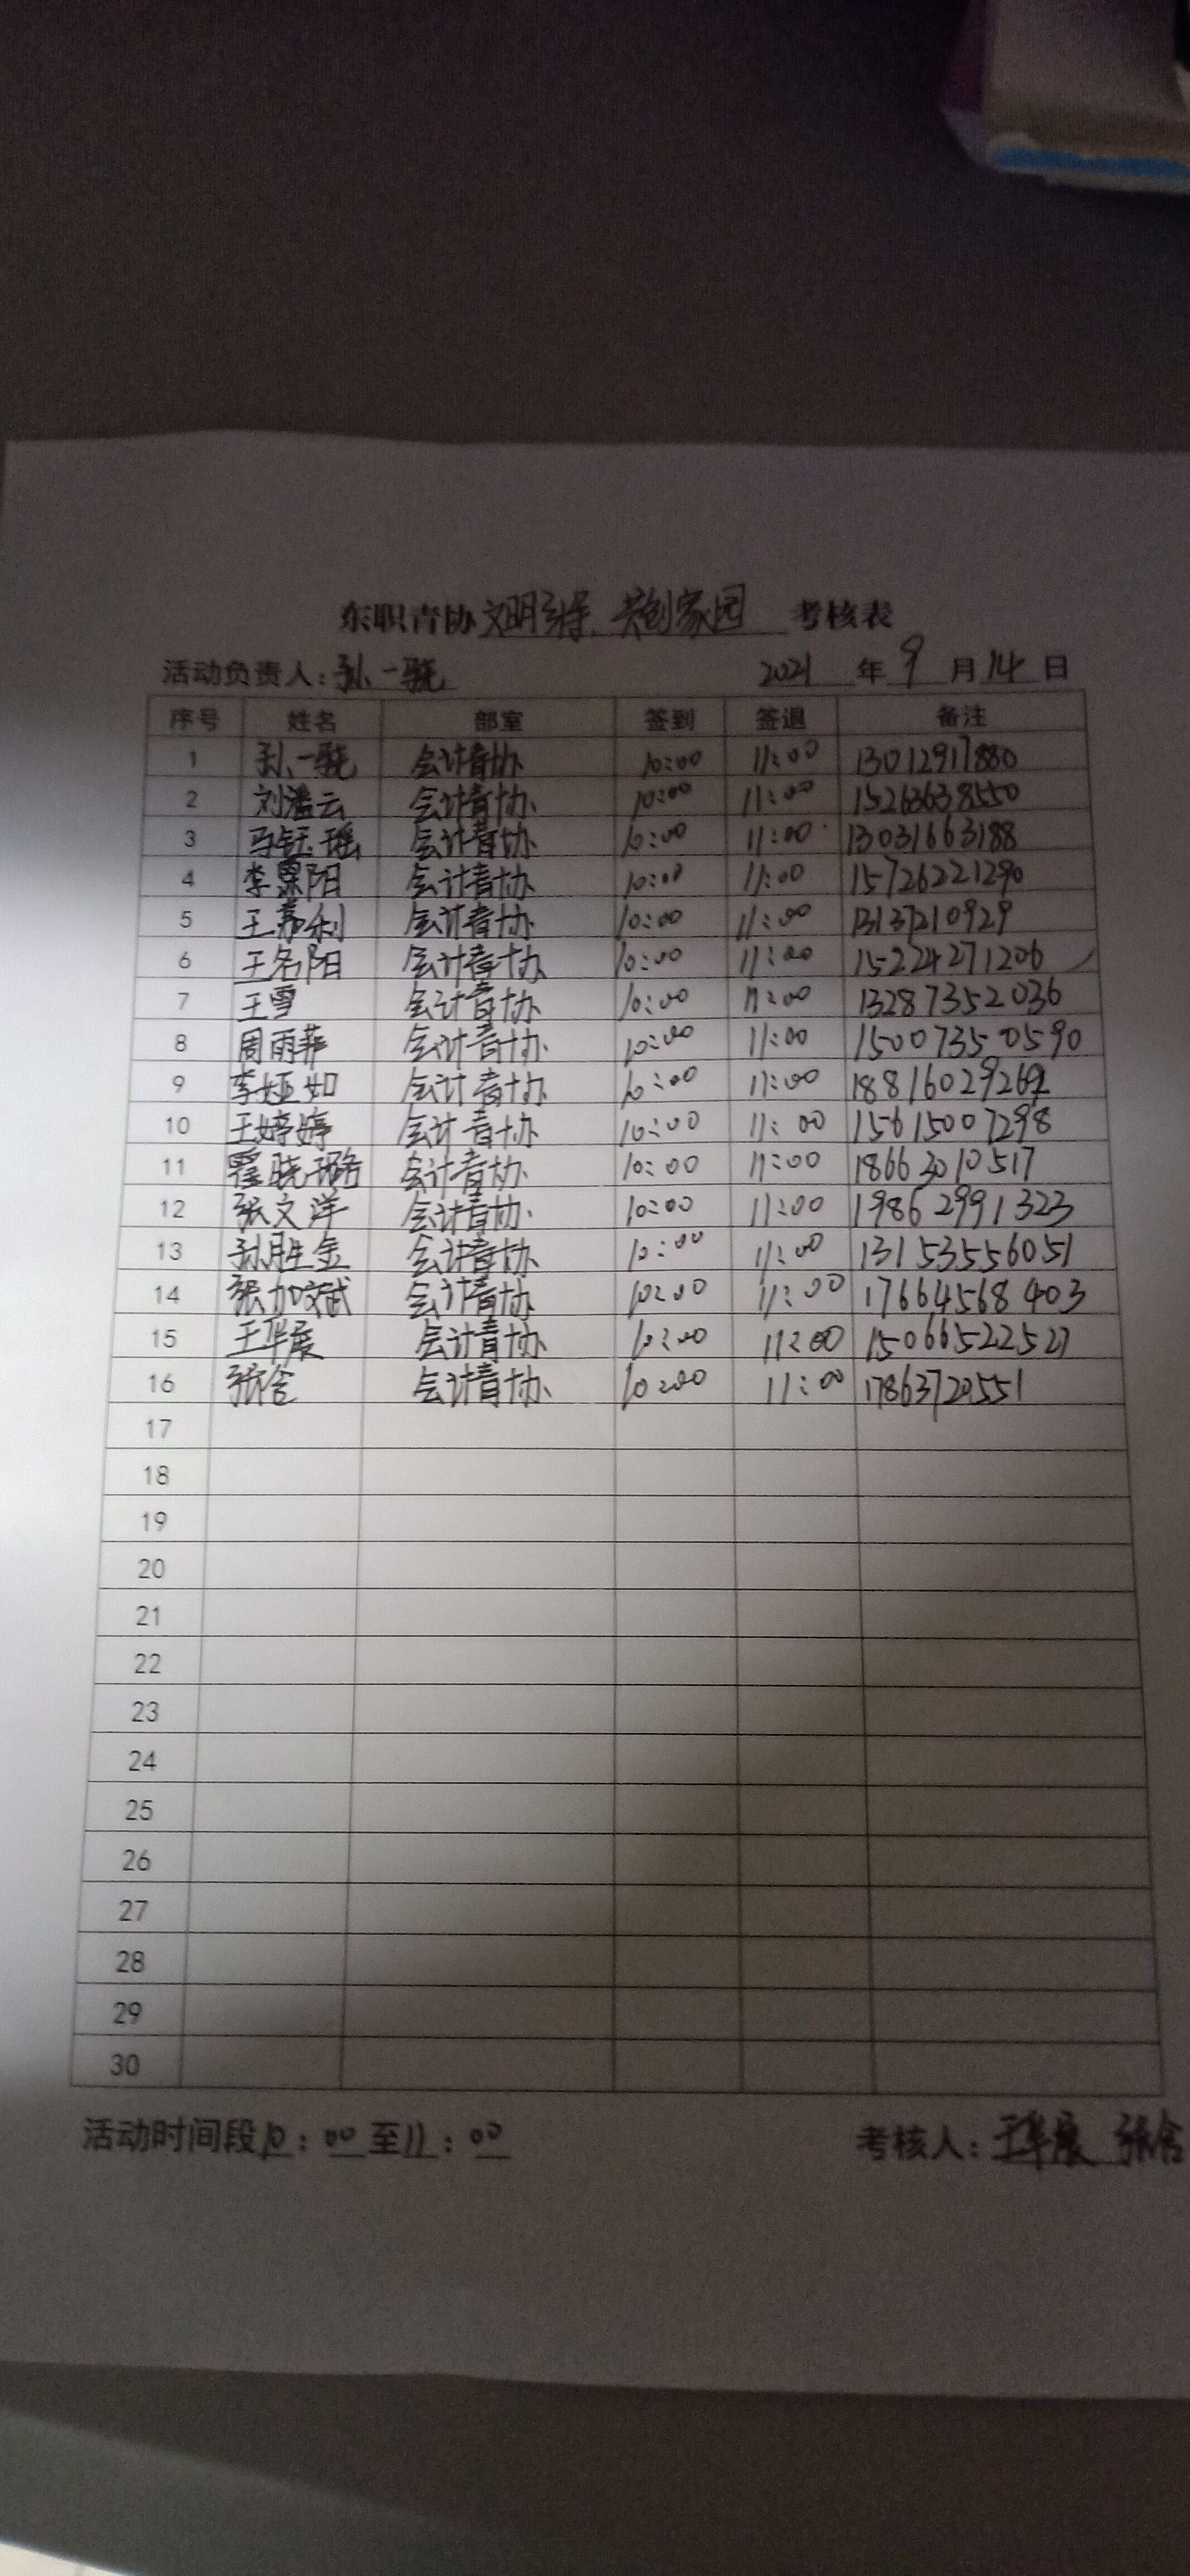 东职青协 文明, 共创家园 考核表
活动负责人: 孙一骁 2021 年 9 月 14 日
序号 姓名 部室 签到 签退 备注
1 孙一骁 会计青协 10:00 11:00 13012917880
2 刘滥云 会计青协 10:00 11:00 15263638550
3 马钰瑶 会计青协 10:00 11:00 13031663188
4 李景阳 会计青协 10:00 11:00 15726221290
5 王利 会计青协 10:00 11:00 13137210929
6 王名阳 会计青协 10:00 11:00 15224271206
7 王雪 会计青协 10:00 11:00 13287352036
8 周雨菲 会计青协 10:00 11:00 15007350590
9 李娅如 会计青协 10:00 11:00 18816029262
10 王婷婷 会计青协 10:00 11:00 15615007298
11 翟晓璐 会计青协 10:00 11:00 18663010517
12 张文洋 会计青协 10:00 11:00 19862991323
13 孙胜金 会计青协 10:00 11:00 13153556051
14 张加斌 会计青协 10:00 11:00 17664568403
15 王华展 会计青协 10:00 11:00 15066522527
16 张含 会计青协 10:00 11:00 17863720551
17
18
19
20
21
22
23
24
25
26
27
28
29
30
活动时间段 10:00 至 11:00 考核人: 王华展 张含